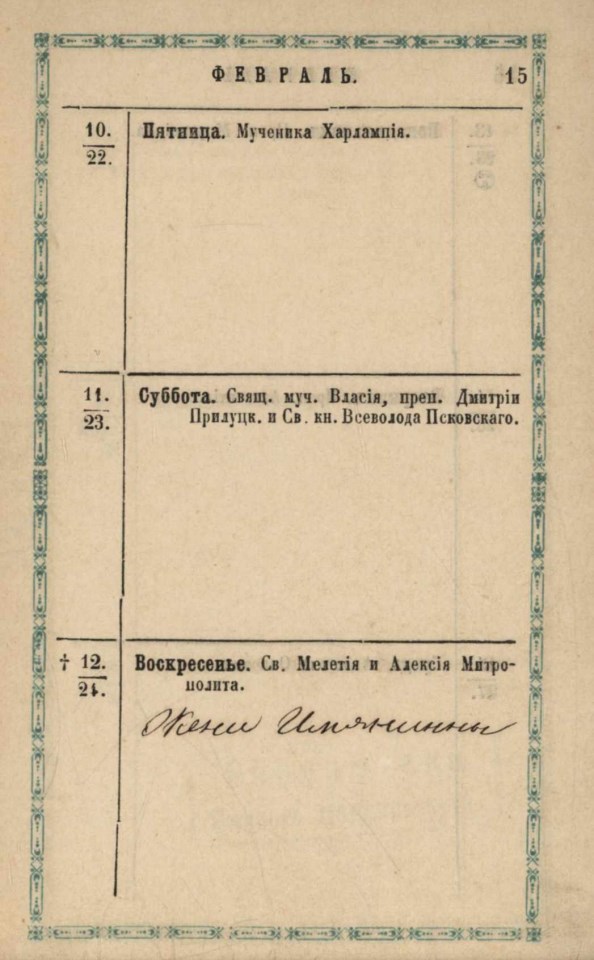 ФЕВРАЛЬ. 15
10.
22.
Пятница. Мученика Харлампія.
11.
23.
Суббота. Свящ. муч. Власія, преп. Дмитрія
Прилуцк. и Св. кн. Всеволода Псковскаго.
† 12.
24.
Воскресенье. Св. Мелетія и Алексія Митро-
полита.
Жени Имянинны